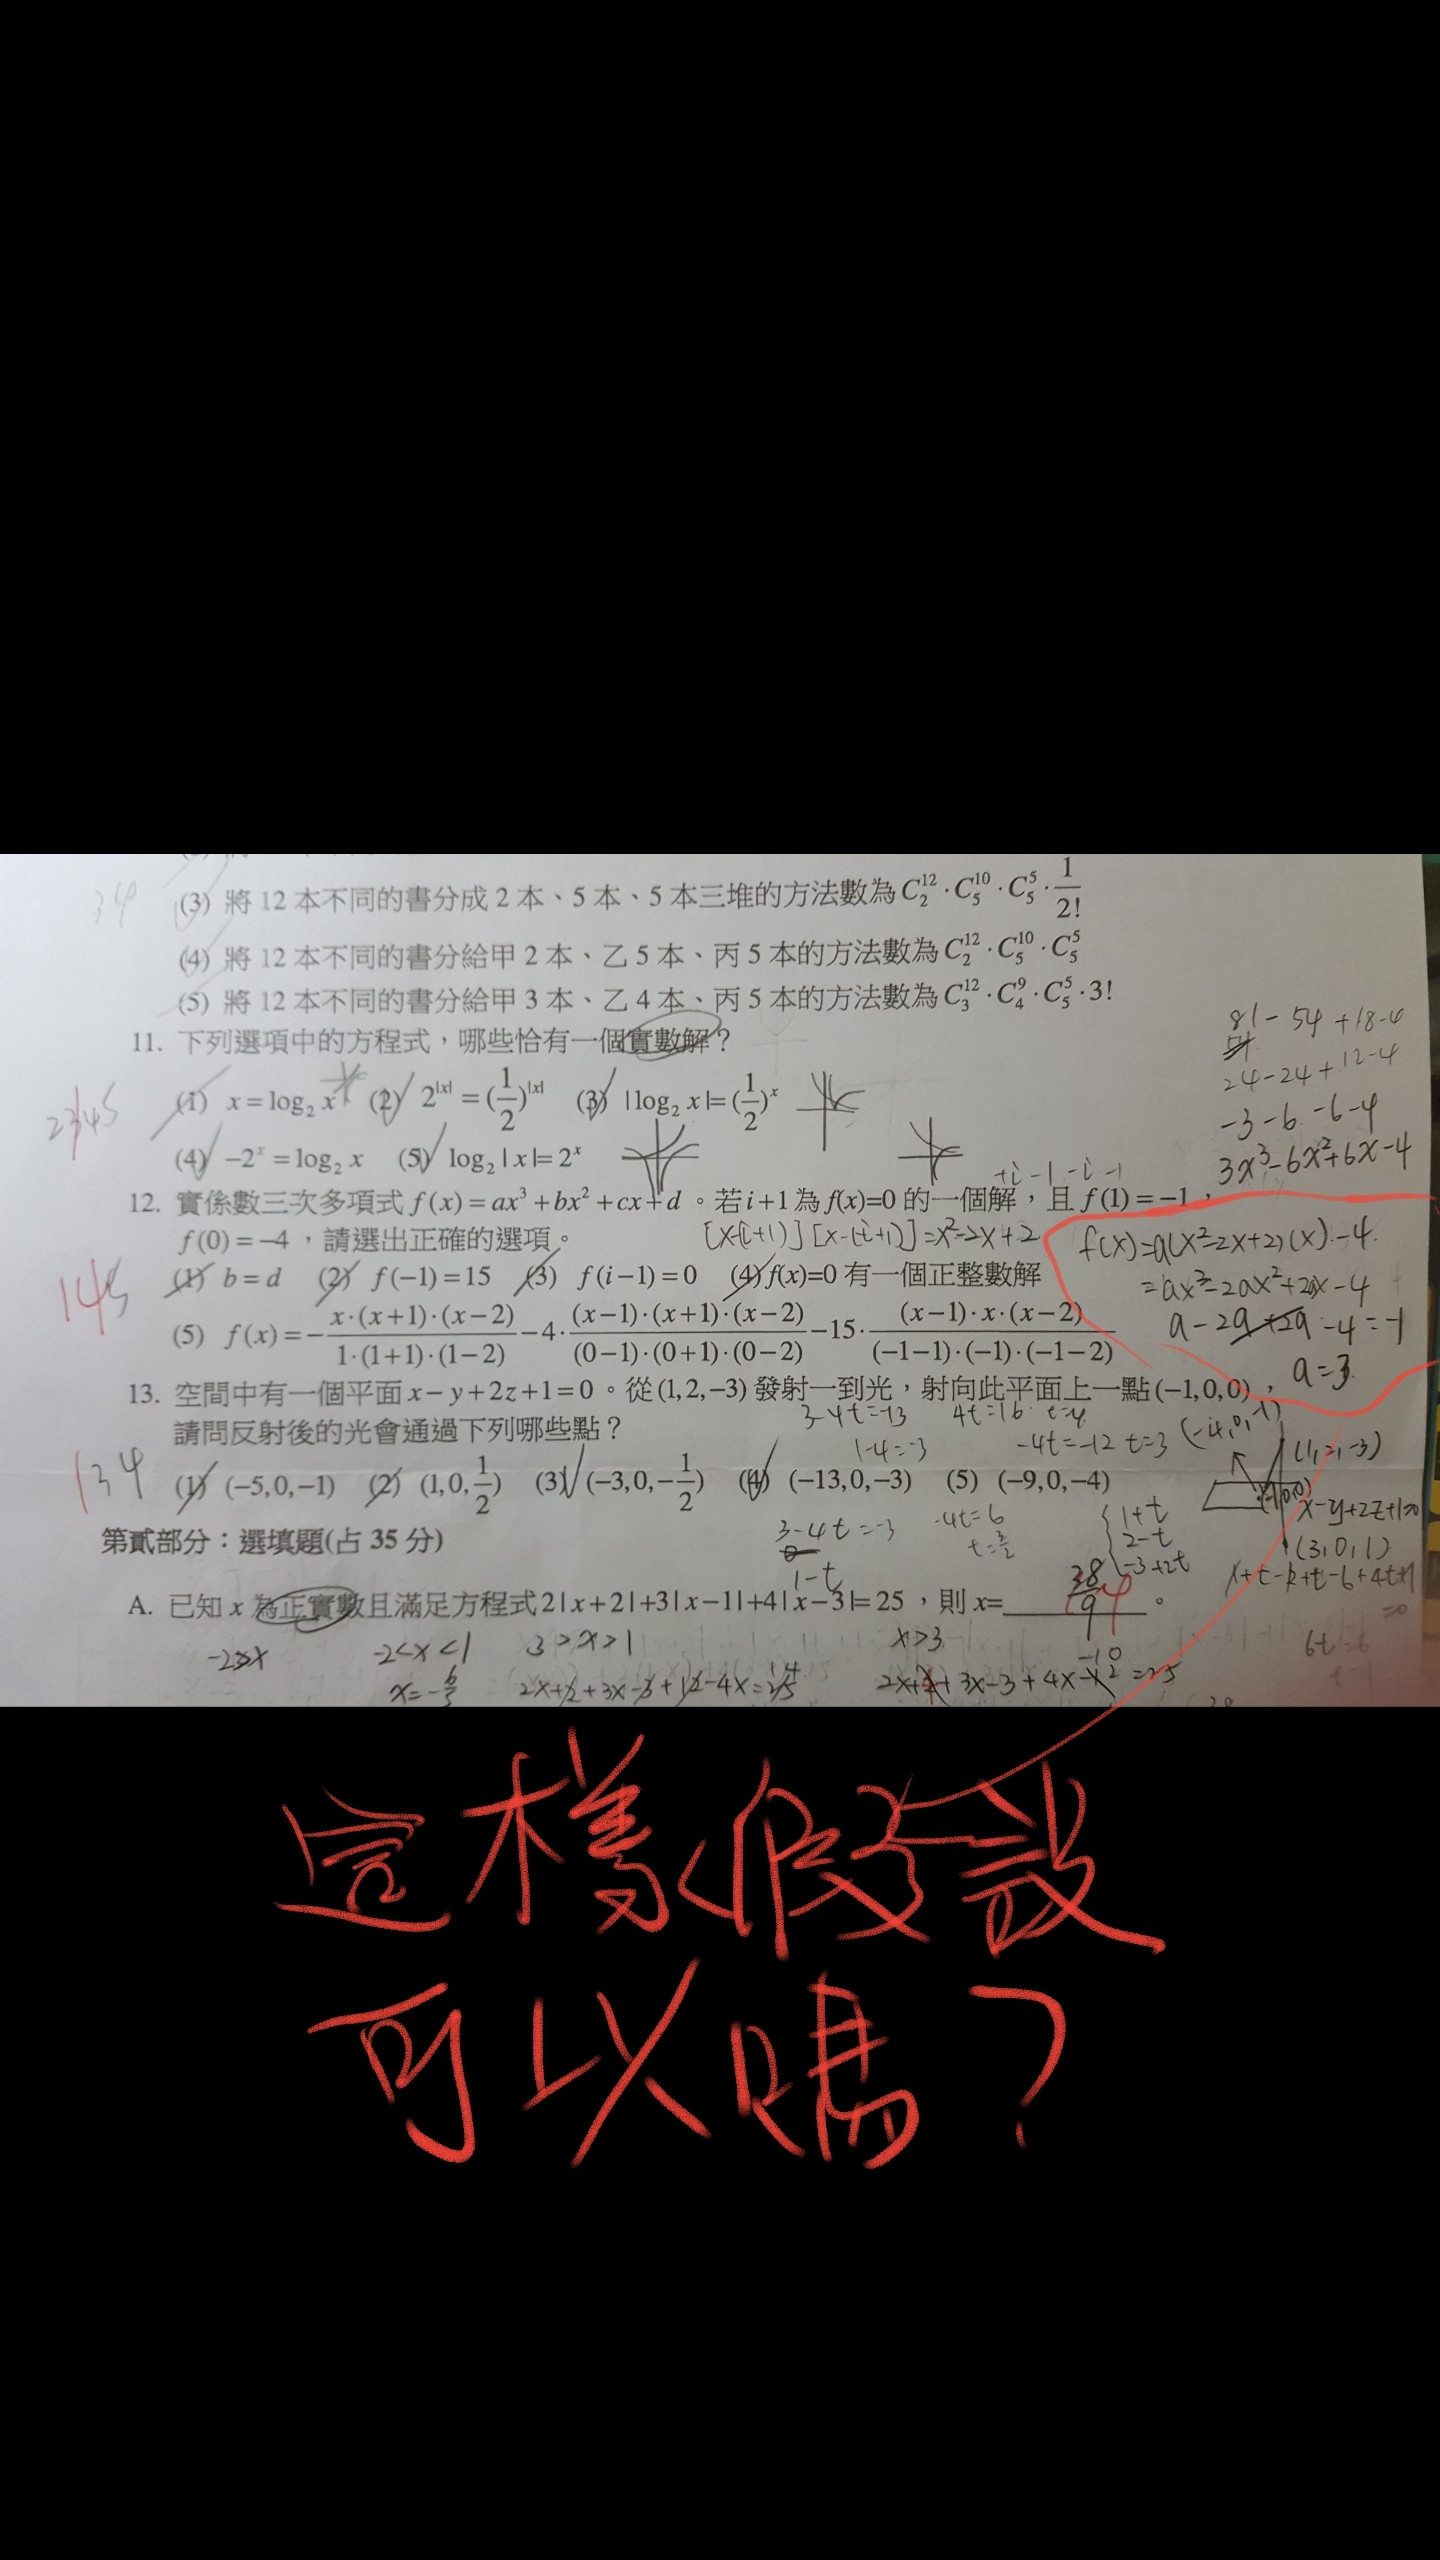 (3) 將 12 本不同的書分成 2 本、5 本、5 本三堆的方法數為 C₂¹²·C₅¹⁰·C₅⁵·1/2!
(4) 將 12 本不同的書分給甲 2 本、乙 5 本、丙 5 本的方法數為 C₂¹²·C₅¹⁰·C₅⁵
(5) 將 12 本不同的書分給甲 3 本、乙 4 本、丙 5 本的方法數為 C₃¹²·C₄⁹·C₅⁵·3!
34
11. 下列選項中的方程式，哪些恰有一個實數解？
(1) x=log₂ x (2) 2^|x|=(1/2)^|x| (3) |log₂ x|=(1/2)^x
2345
(4) −2^x=log₂ x (5) log₂|x|=2^x
81-54+18-4
24-24+12-4
-3-6-6-4
3x³-6x²+6x-4
+i-1-i-1
12. 實係數三次多項式 f(x)=ax³+bx²+cx+d。若 i+1 為 f(x)=0 的一個解，且 f(1)=−1，
f(0)=−4，請選出正確的選項。
[x-(i+1)][x-(-i+1)]=x²-2x+2
(1) b=d (2) f(−1)=15 (3) f(i−1)=0 (4) f(x)=0 有一個正整數解
145
(5) f(x)=−x·(x+1)·(x−2)/1·(1+1)·(1−2)−4·(x−1)·(x+1)·(x−2)/(0−1)·(0+1)·(0−2)−15·(x−1)·x·(x−2)/(−1−1)·(−1)·(−1−2)
f(x)=a(x²-2x+2)(x)-4
=ax³-2ax²+2ax-4
a-2a+2a-4=-1
a=3
13. 空間中有一個平面 x−y+2z+1=0。從 (1,2,−3) 發射一到光，射向此平面上一點 (−1,0,0)，
3-4t=-13 4t=16 t=4
請問反射後的光會通過下列哪些點？
1-4=-3 -4t=-12 t=3 (-4,0,-1)
134
(1) (−5,0,−1) (2) (1,0,1/2) (3) (−3,0,−1/2) (4) (−13,0,−3) (5) (−9,0,−4)
(1,2,-3)
(-1,0,0)
x-y+2z+1=0
(3,0,1)
3-4t=-3
0
1-t
-4t=6
t=3/2
1+t
2-t
-3+2t
=0
6t=6
第貳部分：選填題(占 35 分)
A. 已知 x 為正實數且滿足方程式 2|x+2|+3|x−1|+4|x−3|=25，則 x=38/9 4。
-2>x -2<x<1 3>x>1 x>3
2x+2+3x-3+4x-12=25
這樣假設
可以嗎？